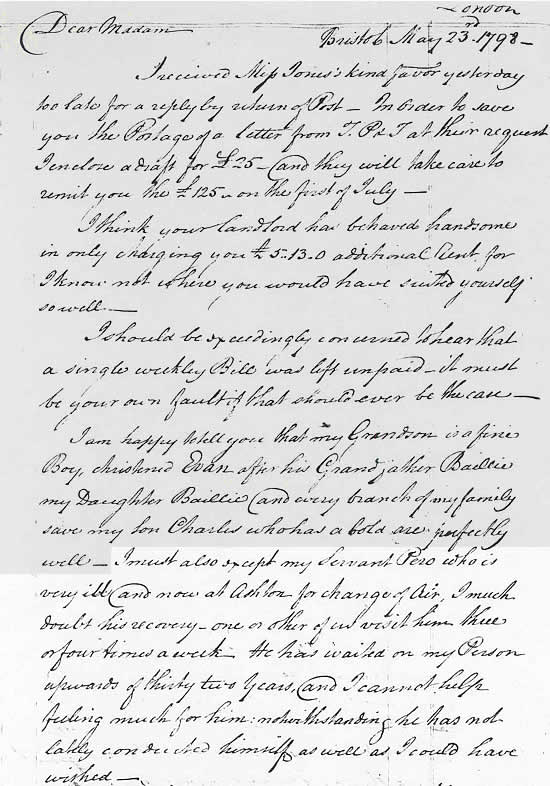 London
Dear Madam
Bristol May 23.rd 1798 -
I received Miss Jones's kind favor yesterday
too late for a reply by return of Post - In order to save
you the Postage of a letter from T. P & T at their request
I enclose a draft for £25 - and they will take care to
remit you the £125 - on the first of July -
I think your landlord has behaved handsome
in only charging you £5-13-0 additional Rent for
I know not where you would have suited yourself
so well. -
I should be exceedingly concerned to hear that
a single weekly Bill was left unpaid - it must
be your own fault if that should ever be the case -
I am happy to tell you that my Grandson is a fine
Boy, christened Evan after his Grandfather Baillie
my Daughter Baillie and every branch of my family
save my son Charles who has a cold are perfectly
well - I must also except my Servant Pero who is
very ill and now at Ashton for change of Air, I much
doubt his recovery - one or other of us visit him three
or four times a week - He has waited on my Person
upwards of thirty two Years, and I cannot help
feeling much for him: notwithstanding he has not
lately conducted himself as well as I could have
wished -